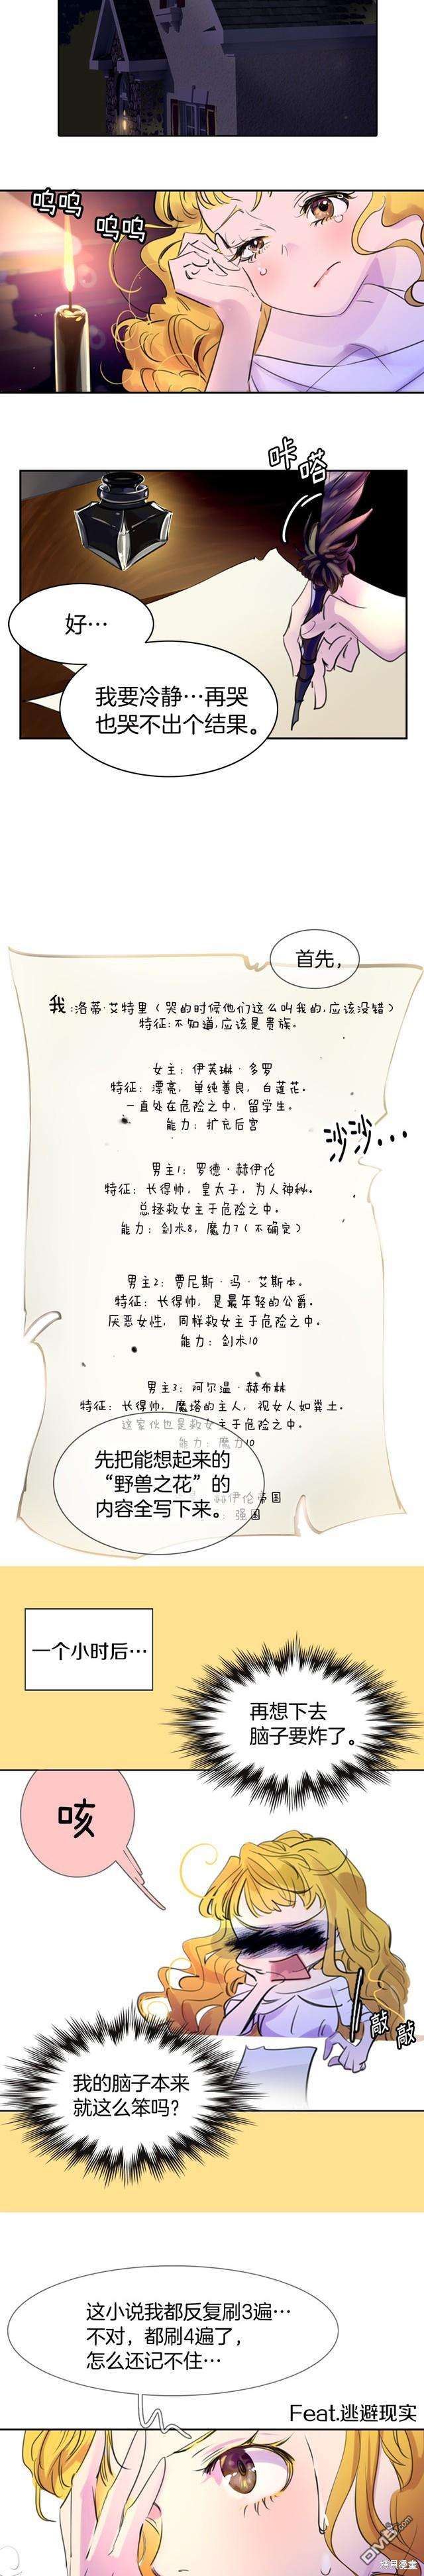 呜呜
呜呜
咔嗒
好…
我要冷静…再哭
也哭不出个结果。
首先，
我:洛蒂·艾特里（哭的时候他们这么叫我的,应该没错）
特征:不知道,应该是贵族。
女主：伊芙琳·多罗
特征：漂亮，单纯善良，白莲花。
一直处在危险之中，留学生。
能力：扩充后宫
沙沙…
男主1：罗德·赫伊伦
特征：长得帅，皇太子，为人神秘。
总拯救女主于危险之中。
能力：剑术8，魔力7（不确定）
男主2：贾尼斯·冯·艾斯本。
特征：长得帅，是最年轻的公爵。
厌恶女性，同样救女主于危险之中。
能力：剑术10
男主3：阿尔温·赫布林
特征：长得帅，魔塔的主人，视女人如粪土。
这家伙也是救女主于危险之中。
能力：魔力10
赫伊伦帝国
强国
先把能想起来的
“野兽之花”的
内容全写下来。
一个小时后…
再想下去
脑子要炸了。
咳
敲
敲
我的脑子本来
就这么笨吗？
这小说我都反复刷3遍…
不对，都刷4遍了，
怎么还记不住…
Feat.逃避现实